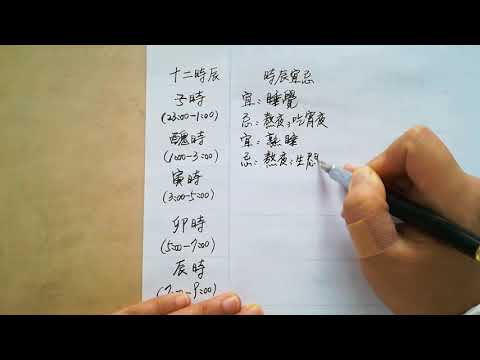 十二時辰
子時
(23:00-1:00)
醜時
(1:00-3:00)
寅時
(3:00-5:00)
卯時
(5:00-7:00)
辰時
(7:00-9:00)
時辰宜忌
宜:睡覺
忌:熬夜;吃宵夜
宜:熟睡
忌:熬夜;生